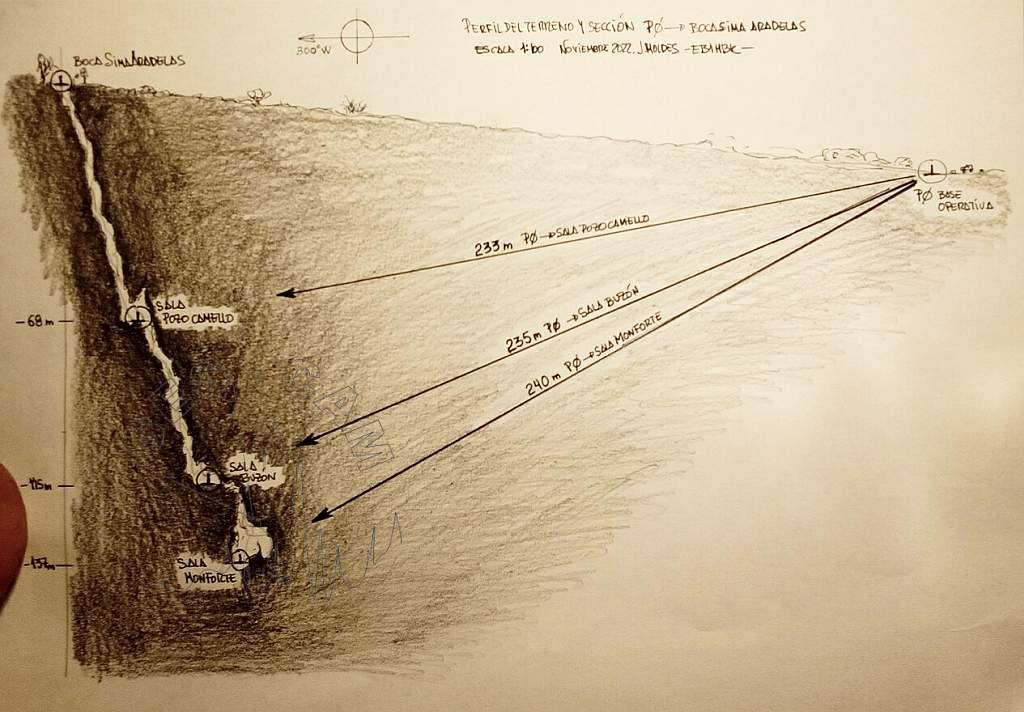 PERFIL DEL TERRENO Y SECCIÓN PØ → BOCA SIMA ARADELAS
ESCALA 1:100 NOVIEMBRE 2022. J. MOLDES -EB1HBK-
300°W
BOCA SIMA ARADELAS
PØ BASE
OPERATIVA
233 m PØ → SALA POZO CAMELLO
235 m PØ → SALA BUZÓN
240 m PØ → SALA MONFORTE
SALA
POZO CAMELLO
-68 m
SALA
BUZÓN
-115 m
SALA
MONFORTE
-137 m